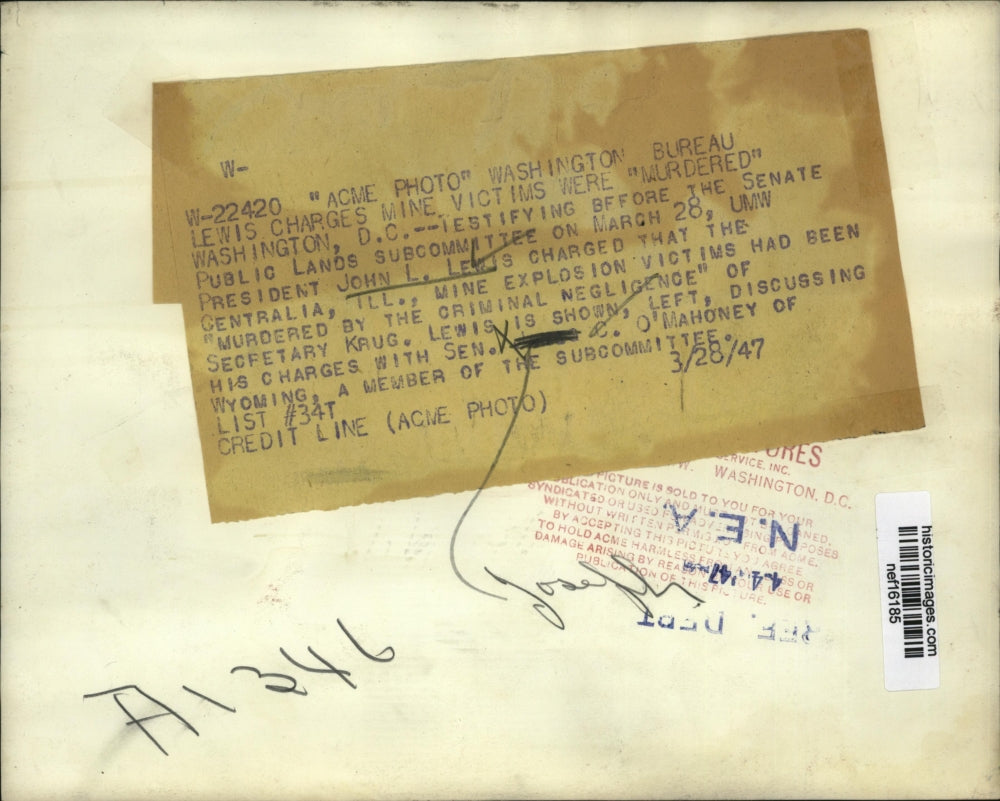 W-
W-22420 "ACME PHOTO" WASHINGTON BUREAU
LEWIS CHARGES MINE VICTIMS WERE "MURDERED"
WASHINGTON, D.C.--TESTIFYING BFFORE THE SENATE
PUBLIC LANDS SUBCOMMITTEE ON MARCH 28, UMW
PRESIDENT JOHN L. LEWIS CHARGED THAT THE
CENTRALIA, ILL., MINE EXPLOSION VICTIMS HAD BEEN
"MURDERED BY THE CRIMINAL NEGLIGENCE" OF
SECRETARY KRUG. LEWIS IS SHOWN, LEFT, DISCUSSING
HIS CHARGES WITH SEN. C. O'MAHONEY OF
WYOMING, A MEMBER OF THE SUBCOMMITTEE.
LIST #34T 3/28/47
CREDIT LINE (ACME PHOTO)
SERVICE, INC.
W. WASHINGTON, D.C.
PICTURE IS SOLD TO YOU FOR YOUR
PUBLICATION ONLY AND
SYNDICATED OR USED PURPOSES
WITHOUT WRITTEN FROM ACME.
BY ACCEPTING THIS PICTURE YOU AGREE
TO HOLD ACME HARMLESS OR
DAMAGE ARISING BY REASON YOUR USE OR
PUBLICATION OF THIS PICTURE.
N.E.A.
4-4-'47
REF. DEPT
Joseph
A1346
historicimages.com
nef16185